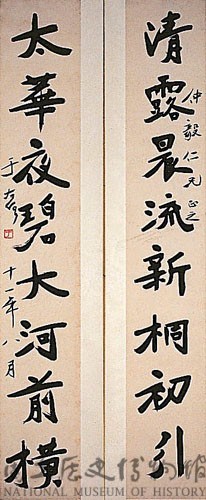 清露晨流新桐初引
仲毅仁兄正之
太華夜碧大河前橫
于右任
十一年八月
國立歷史博物館
NATIONAL MUSEUM OF HISTORY